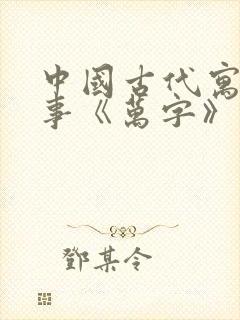 中國古代寓
事《萬字》
鄧某令